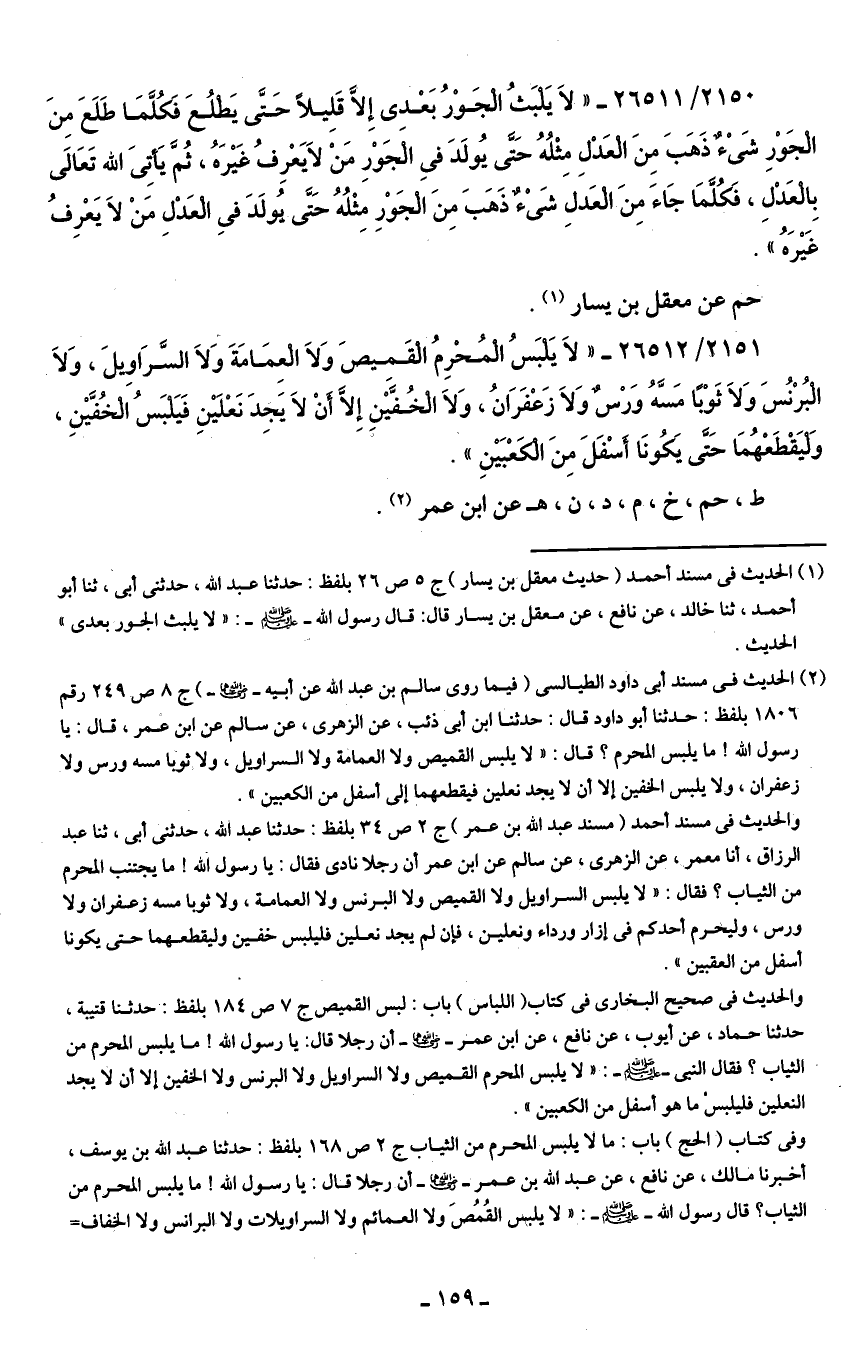 ٢٦٥١١/٢١٥٠ ـ « لاَ يَلْبَثُ الجَـوْرُ بَعْـدِى إِلاَّ قَلِيـلاً حَـتَّى يَطْلُـعَ فَكُلَّمَـا طَلَعَ مِنَ
الْجَوْرِ شَىْءٌ ذَهَبَ مِنَ العَدْلِ مِثْلُهُ حَتَّى يُولَدَ فى الجَوْرِ مَنْ لاَيَعْرِفُ غَيْرَهُ ، ثُمَّ يَأتِىَ الله تَعَالَى
بِالْعَدْلِ ، فَكُلَّمَا جَاءَ مِنَ العَدلِ شَىْءٌ ذَهَبَ مِنَ الجَوْرِ مِثْلُهُ حَتَّى يُولَدَ فىِ العَدْلِ مَنْ لاَ يَعْرِفُ
غَيْرَهُ » .
حم عن معقل بن يسار (١) .
٢٦٥١٢/٢١٥١ ـ « لاَ يَلبَسُ المُـحْرِمُ القَـمِـيصَ وَلاَ العِمَـامَةَ وَلاَ السَّـرَاوِيلَ ، وَلاَ
البُرْنُسَ وَلاَ ثَوبًا مَسَّهُ وَرْسٌ وَلاَ زَعْفَرَانُ ، وَلاَ الخُـفَّيْنِ إِلاَّ أَنْ لاَ يَجِدَ نَعْلَيْنِ فَيَلبَسُ الخُفَّيْنِ ،
وَلَيَقْطَعْهُمَا حَتَّى يَكُونَا أَسْفَلَ مِنَ الْكَعْبَيْنِ » .
ط ، حم ، خ ، م ، د ، ن ، هـ عن ابن عمر (٢) .
(١) الحديث فى مسند أحمـد ( حديث معقل بن يسار ) ج ٥ ص ٢٦ بلفظ : حدثنا عبـد الله ، حدثنى أبى ، ثنا أبو
أحمـد ، ثنا خالد ، عن نافع ، عن مـعقل بن يسار قال: قـال رسول الله ـ ﷺ ـ : « لا يلبث الجـور بعدى »
الحديث .
(٢) الحديث فـى مسند أبى داود الطيالسى ( فيـما روى سالـم بن عبد الله عن أبـيه ـ رضي الله عنهما ـ ) ج ٨ ص ٢٤٩ رقم
١٨٠٦ بلفظ : حـدثنا أبو داود قـال : حدثنـا ابن أبى ذئب ، عن الزهرى ، عن سـالم عن ابن عـمر ، قـال : يا
رسول الله ! ما يلبس المحرم ؟ قـال : « لا يلبس القميص ولا العمامة ولا الـسراويل ، ولا ثوبا مسه ورس ولا
زعفران ، ولا يلبس الخفين إلا أن لا يجد نعلين فيقطعهما إلى أسفل من الكعبين » .
والحديث فى مسند أحمد ( مسند عبد الله بن عمر ) ج ٢ ص ٣٤ بلفظ : حدثنا عبد الله ، حدثنى أبى ، ثنا عبد
الرزاق ، أنا معمر ، عن الزهرى ، عن سالم عن ابن عمر أن رجلا نادى فقال : يا رسول الله ! ما يجتنب المحرم
من الثيـاب ؟ فقال : « لا يلبس السـراويل ولا القميص ولا البـرنس ولا العمامـة ، ولا ثوبا مسه زعـفران ولا
ورس ، وليحرم أحدكم فى إزار ورداء ونعليـن ، فإن لم يجد نعـلين فليلبس خفـين وليقطعـهما حتـى يكونا
أسفل من العقبين » .
والحديث فى صحيح البـخارى فى كتاب( اللباس ) باب : لبس القميص ج ٧ ص ١٨٤ بلفظ : حدثـنا قتيبة ،
حدثنا حـماد ، عن أيوب ، عن نافع ، عن ابن عمـر ـ رضي الله عنهما ـ أن رجلا قال: يا رسول الله ! مـا يلبس المحرم من
الثياب ؟ فقال النبى ـ ﷺ ـ : « لا يلبس المحرم القـميص ولا السراويل ولا البرنس ولا الخفين إلا أن لا يجد
النعلين فليلبسْ ما هو أسفل من الكعبين » .
وفى كتـاب ( الحج ) باب : ما لا يلبس المحـرم من الثياب ج ٢ ص ١٦٨ بلفظ : حدثنا عبـد الله بن يوسف ،
أخـبرنا مـالك ، عن نافع ، عن عبـد الله بن عـمـر ـ رضي الله عنهما ـ أن رجلا قـال : يا رسـول الله ! ما يلبس المحـرم من
الثياب؟ قال رسول الله ـ ﷺ ـ : « لا يلبس القُمُصَ ولا العـمائم ولا السراويلات ولا البرانس ولا الخفاف=
ـ ١٥٩ ـ